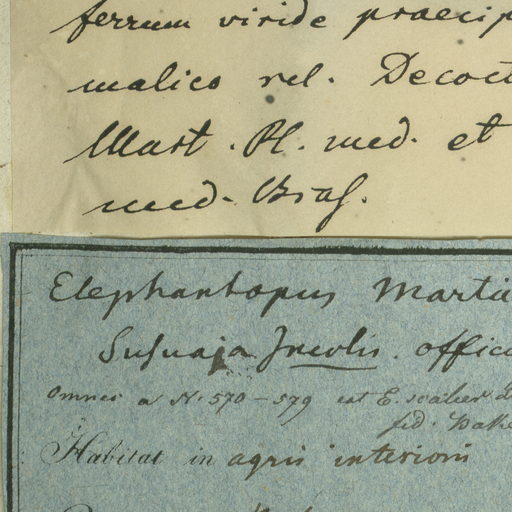 ferrum viride praecip
malico vel. Decoct
Mart. Pl. med. et
med. Bras.
Elephantopus Martii
Susuaja Incolis. offici
Omnes a N. 570 - 579 est E. scaber
fid. Bake
Habitat in agris interioris